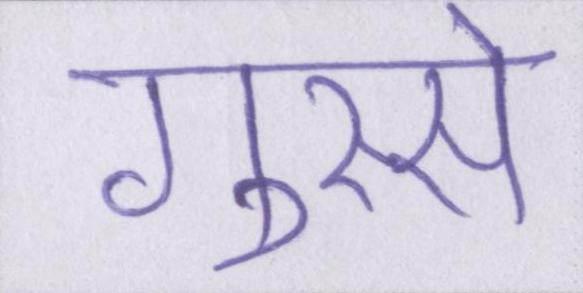 गुस्से